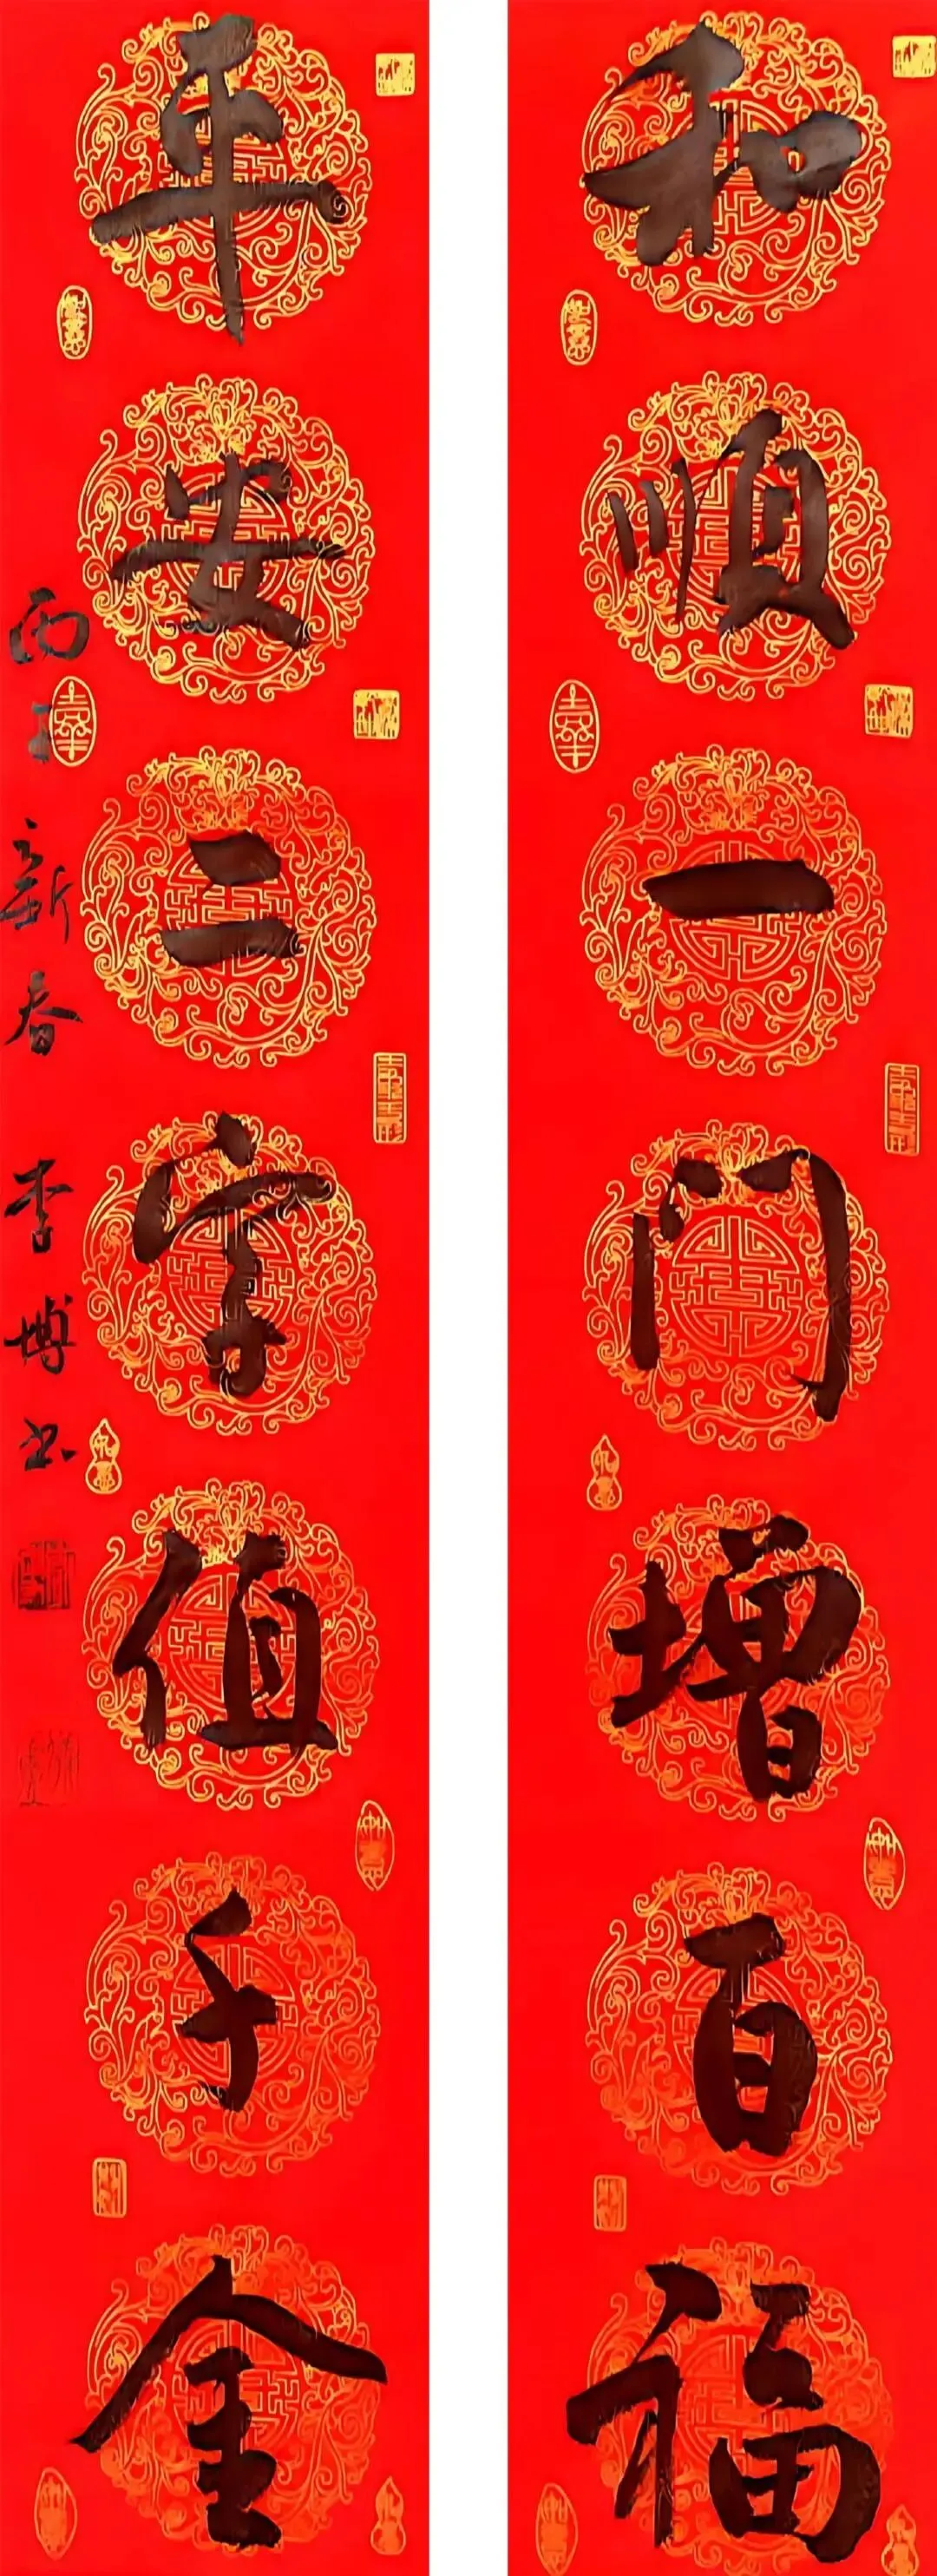 和顺一门增百福
平安二字值千金
丙午新春 李博书